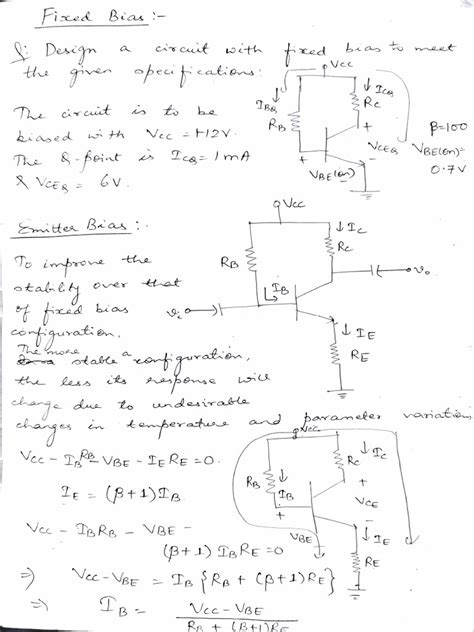 Fixed Bias :-
Q: Design a circuit with fixed bias to meet
the given specifications:
VCC
The circuit is to be
biased with VCC = +12V.
The Q-point is ICQ = 1mA
& VCEQ = 6V.
IBQ
RB
ICQ
RC
+
VCEQ
-
+
VBE(on)
β=100
VBE(on)=
0.7V
Emitter Bias :-
To improve the
stability over that
of fixed bias
configuration.
The more stable a configuration,
the less its response will
change due to undesirable
changes in temperature and parameter variation
VCC
IC
RC
RB
IB
vi
vo
IE
RE
VCC - IB RB - VBE - IE RE = 0.
IE = (β+1) IB
VCC - IB RB - VBE -
(β+1) IB RE = 0
⇒ VCC - VBE = IB {RB + (β+1) RE}
⇒ IB = VCC - VBE
RB + (β+1) RE
VCC
RC
IC
RB
IB
+
+
VCE
-
VBE
IE
RE